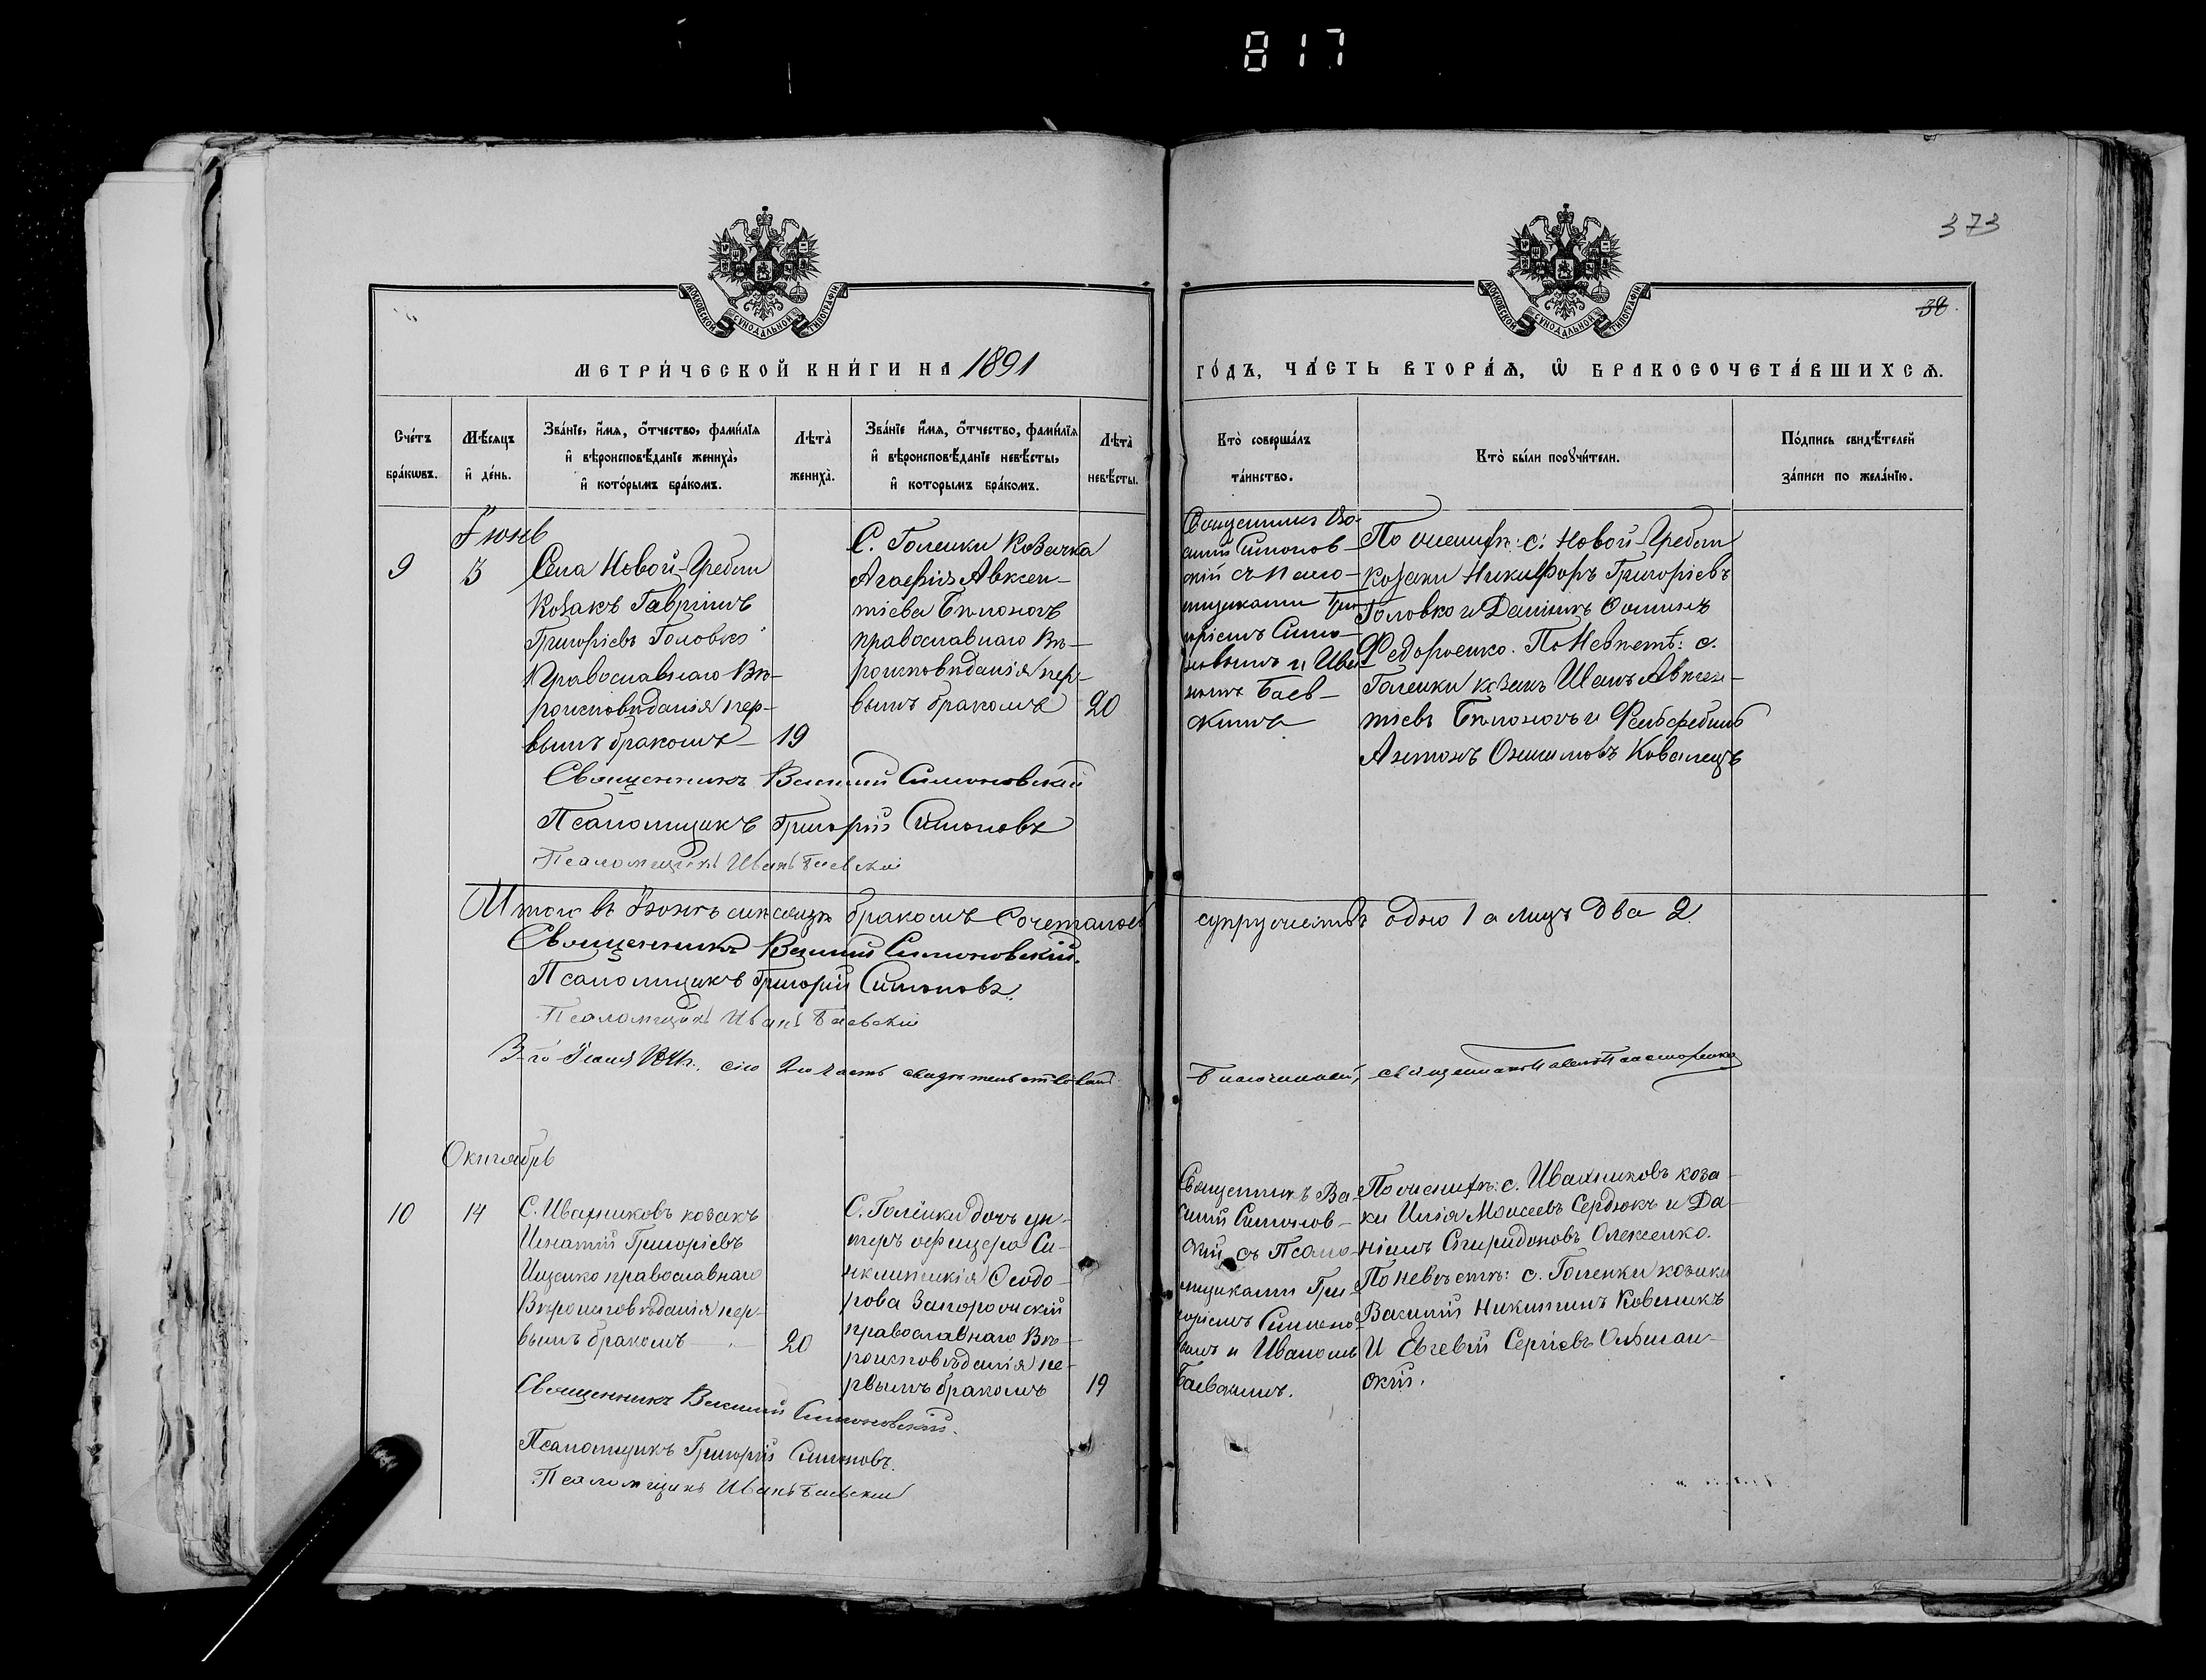 817
373
38.
МОСКОВСКОЙ СѴНОДАЛЬНОЙ ТИПОГРАФІИ
МОСКОВСКОЙ СѴНОДАЛЬНОЙ ТИПОГРАФІИ
МЕТРИ́ЧЕСКОЙ КНИ́ГИ НА 1891
ГО́ДЪ, ЧА́СТЬ ВТОРА́Ѧ, Ѡ҆ БРАКОСОЧЕТА́ВШИХСѦ.
Сче́тъ
бра́кωвъ.
Мѣ́сяцъ
и҆ де́нь.
Зва́нїе, и҆́мя, ѻ҆́тчество, фами́лїя
и҆ вѣроисповѣ́данїе жениха̀,
и҆ кото́рымъ бра́комъ.
Лѣта̀
жениха̀.
Зва́нїе и҆́мя, ѻ҆́тчество, фами́лїя
и҆ вѣроисповѣ́данїе невѣ́сты,
и҆ которымъ бра́комъ.
Лѣта̀
невѣ́сты.
Кто̀ соверша́лъ
та́инство.
Кто̀ бы́ли порꙋчи́тели.
По́дпись свидѣ́телей
за́писи по жела́нїю.
Іюнь
9
3
Села Новой-Гребли
козакъ Гавріилъ
Григоріевъ Головко
Православнаго Вѣ-
роисповѣданія пер-
вымъ бракомъ
19
С. Голенки козачка
Агафія Авксен-
тіева Бѣлоногъ
православнаго Вѣ-
роисповѣданія пер-
вымъ бракомъ
20
Священникъ Ва-
силій Симонов-
скій съ псало-
мщиками Гри-
горіемъ Симо-
новымъ и Ива-
номъ Баев-
скимъ
По женихѣ: с. Новой-Гребли
козаки Никифоръ Григоріевъ
Головко и Даніилъ
Федоренко. По Невѣстѣ: с.
Голенки козакъ Иванъ Авксен-
тіевъ Бѣлоногъ и Фельдфебель
Антонъ Ковалецъ
Священникъ Василій Симоновскій
Псаломщикъ Григорій Симоновъ
Псаломщикъ Иванъ Баевскій
Итого въ Іюнѣ мѣсяцѣ бракомъ Сочеталось
супружествъ одно 1 а лицъ два 2
Священникъ Василій Симоновскій.
Псаломщикъ Григорій Симоновъ.
Псаломщикъ Иванъ Баевскій
сію 2ю часть свидѣтельствовалъ
Благочинный, священникъ
Октябрь
10
14
С. Иваниковъ козакъ
Игнатій Григоріевъ
Ищенко православнаго
Вѣроисповѣданія пер-
вымъ бракомъ
20
С. Голенки дочь ун-
теръ офицера Си-
нклитикія Ѳеодо-
рова Запорожскій
православнаго Вѣ-
роисповѣданія пе-
рвымъ бракомъ
19
Священникъ Ва-
силій Симонов-
скій съ Псало-
мщиками Гри-
горіемъ Симоно-
вымъ и Иваномъ
Баевскимъ.
По женихѣ: с. Иваниковъ коза-
ки Илія Моисеевъ Сердюкъ и Да-
ніилъ Спиридоновъ Олексенко.
По невѣстѣ: с. Голенки козаки
Василій Никитинъ Коваликъ
и Евгеній Сергіевъ Ольшан-
скій.
Священникъ Василій Симоновскій.
Псаломщикъ Григорій Симоновъ.
Псаломщикъ Иванъ Баевскій